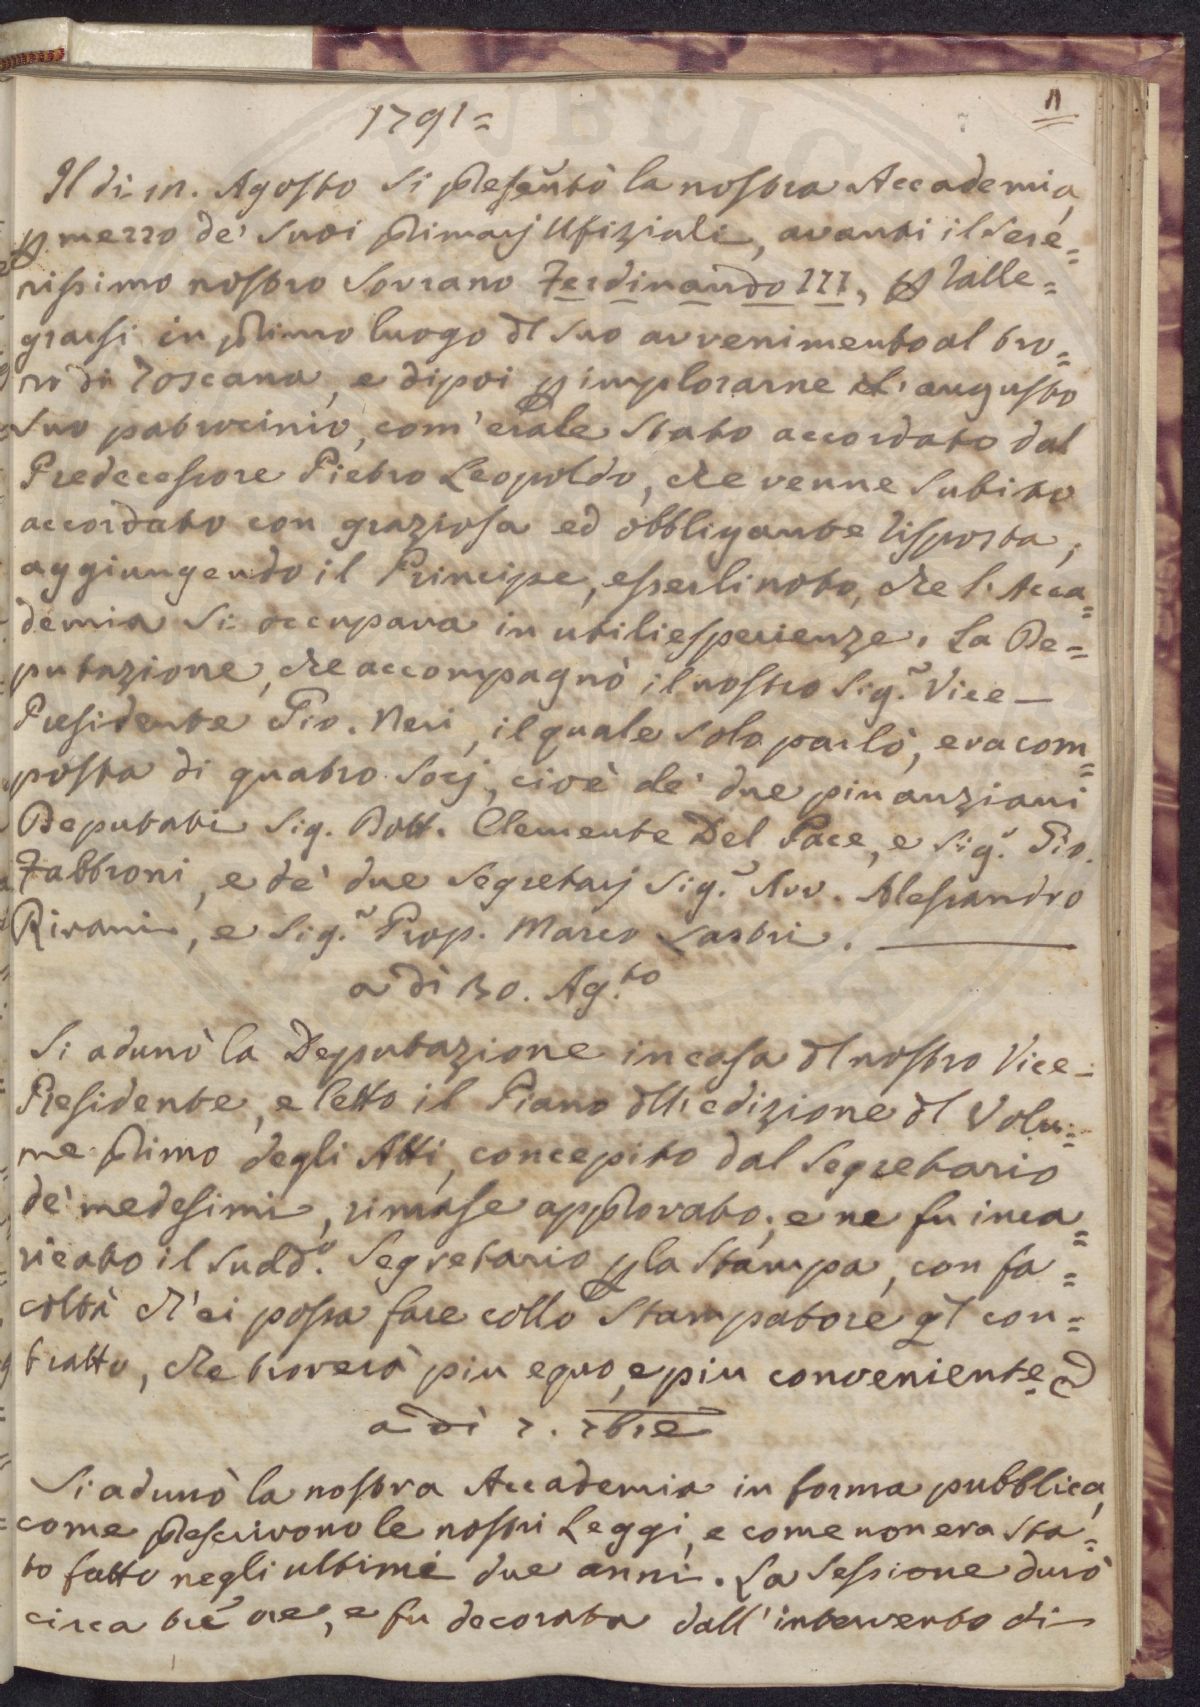 11
1791=
Il di: 11. Agosto si presentò la nostra Accademia,
p mezzo de' suoi primarj Ufiziali, avanti il Sere=
nissimo nostro Sovrano Ferdinando III, p ralle=
grarsi in primo luogo dl suo avvenimento al tro=
no di Toscana, e dipoi p implorarne l'augusto
suo patrocinio, com'erale stato accordato dal
Predecessore Pietro Leopoldo, che venne subito
accordato con graziosa ed obbligante risposta,
aggiungendo il Principe, esserli noto, che l'Acca=
demia si occupava in utili esperienze. La De=
putazione, che accompagnò il nostro Sig.r Vice-
Presidente Gio. Neri, il quale solo parlò, era com=
posta di quatro Socj, cioè de' due piu anziani
Deputati Sig. Dott. Clemente Del Pace, e Sig.r Gio.
Fabbroni, e de' due Segretarj Sig.r Avv. Alessandro
Rivani, e Sig.r Prop. Marco Lastri.
a dì 30. Ag.to
Si adunò la Deputazione in casa dl nostro Vice-
Presidente, e letto il Piano dll'edizione dl Volu=
me primo degli Atti, concepito dal Segretario
de' medesimi, rimase approvato; e ne fu inca=
ricato il sudd.o Segretario p la stampa, con fa=
coltà ch'ei possa fare collo Stampatore ql con=
tratto, che troverà piu equo, e piu conveniente.
a dì 7. 7bre
Si adunò la nostra Accademia in forma pubblica,
come prescrivono le nostri Leggi, e come non era sta=
to fatto negli ultimi due anni. La Sessione durò
circa tre ore, e fu decorata dall'intervento di